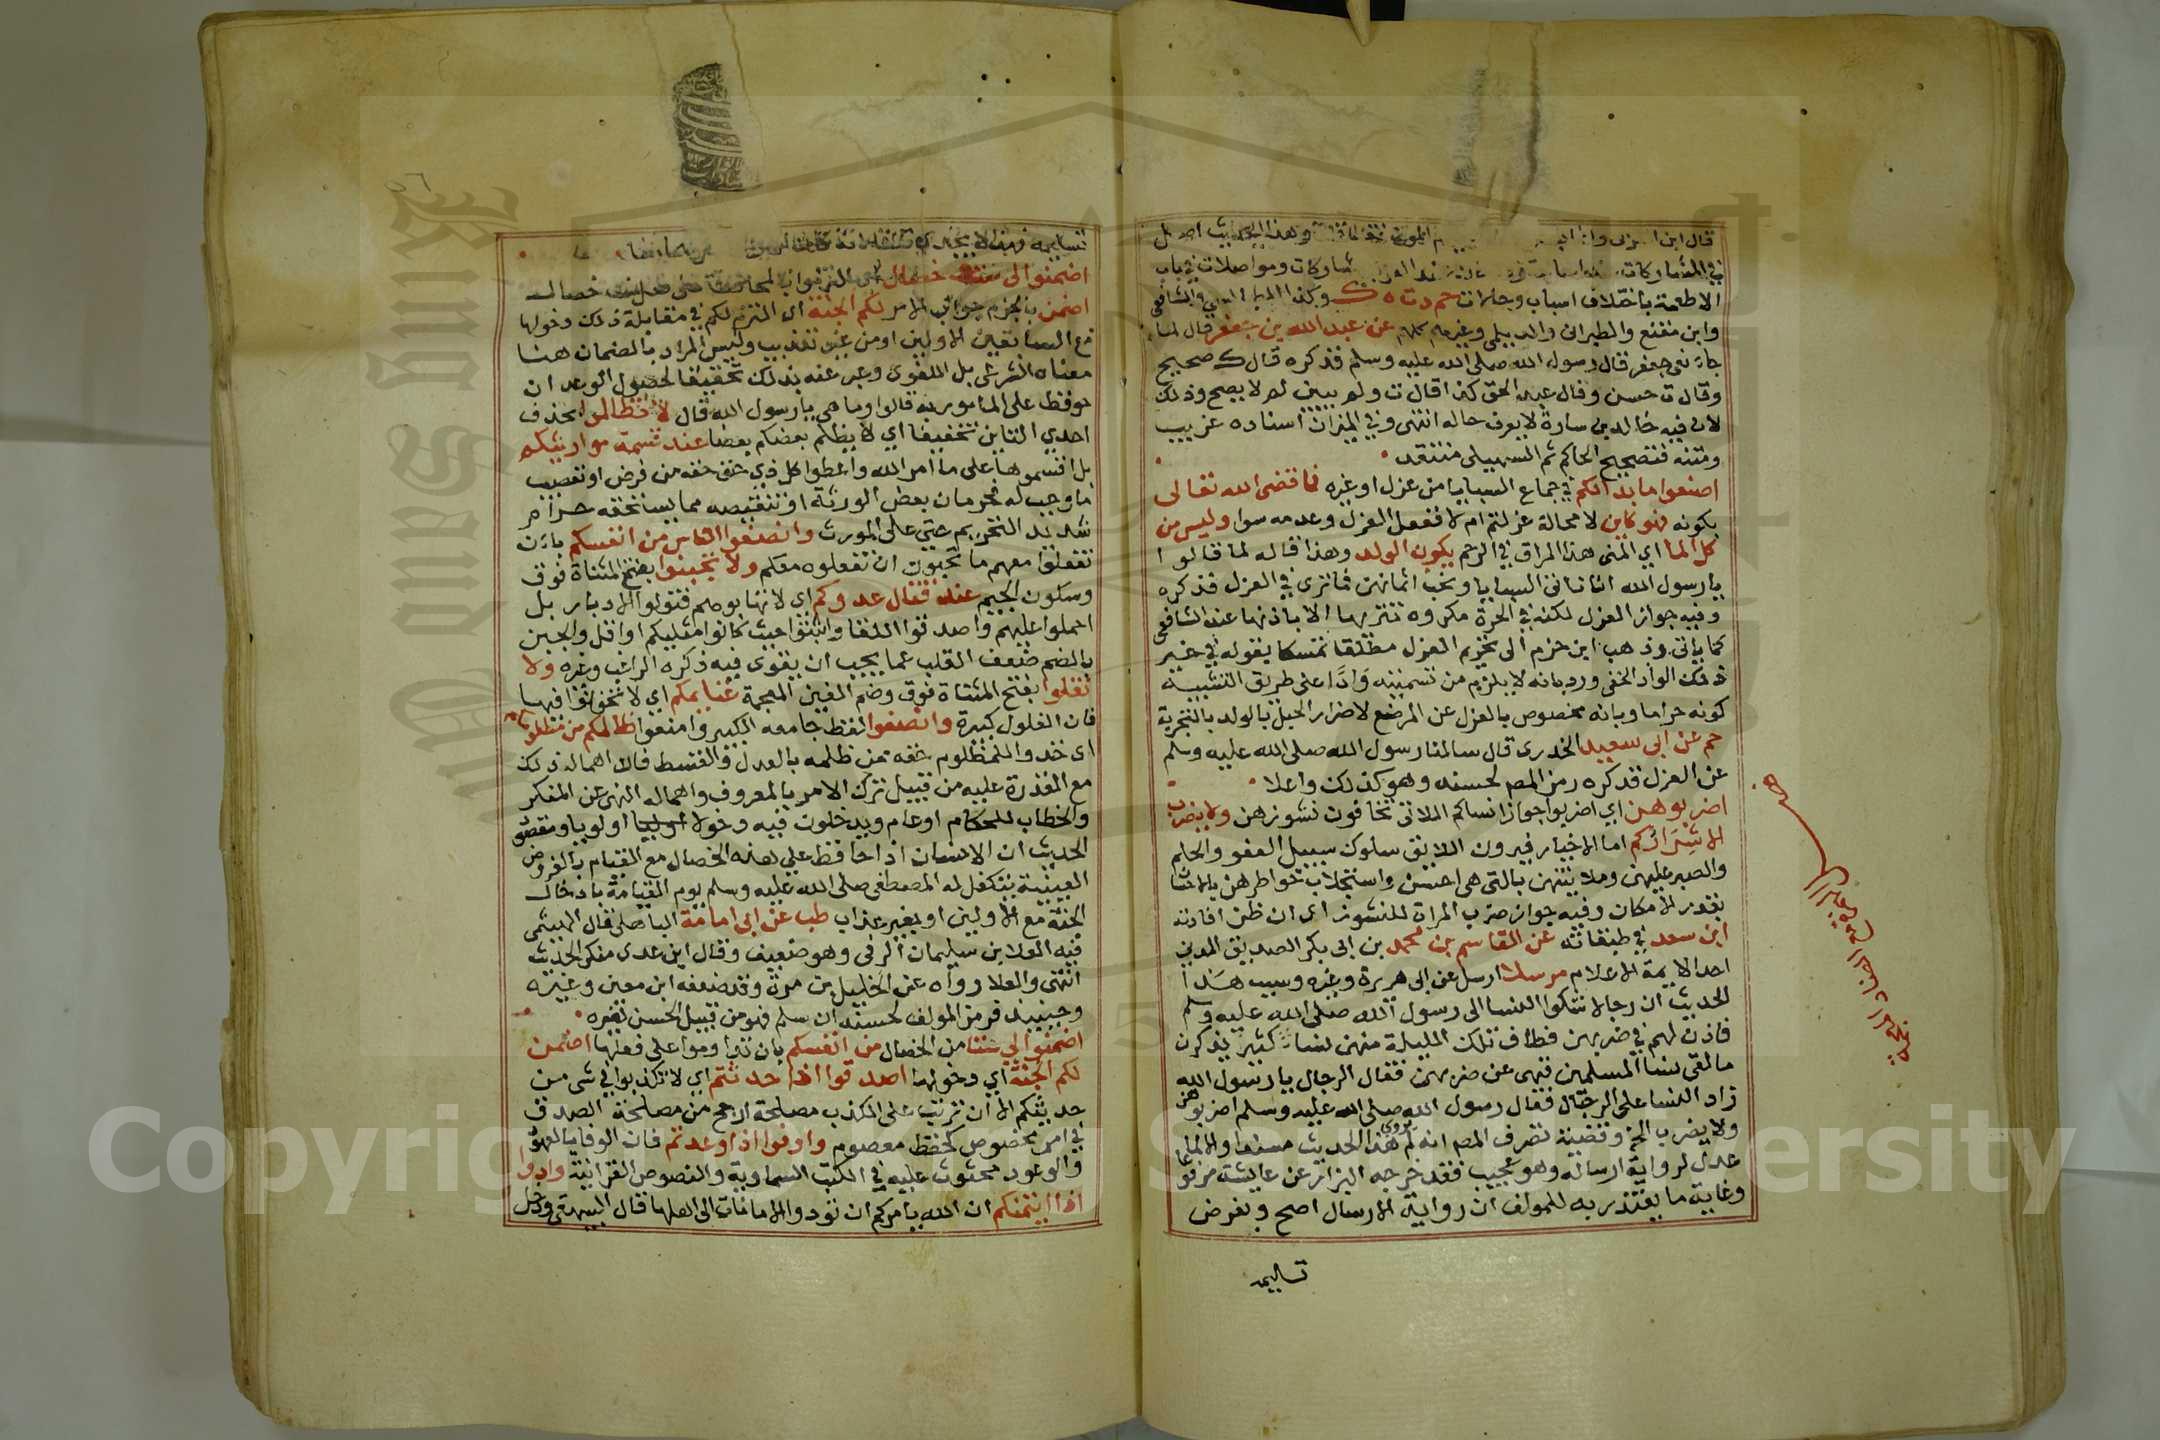 قال ابن العربى وهذا الحديث اصل
في المشاركات مشاركات ومواصلات في باب
الاطعمة باختلاف اسباب وحالات حم د ت ه ك وكذا النسائي والشافعي
وابن منيع والطبراني والديلمي وغيرهم كلهم عن عبد الله بن جعفر قال لما
جاء نعى جعفر قال رسول الله صلى الله عليه وسلم فذكره قال ك صحيح
وقال ت حسن وقال عبد الحق كذا قال ت ولم يبين لم لا يصح وذلك
لان فيه خالد بن سارة لا يعرف حاله انتهى وفي الميزان اسناده غريب
ومتنه فتصحيح الحاكم ثم السهيلي منتقد
اصنعوا ما بدا لكم في جماع السبايا من عزل او غيره فما قضى الله تعالى
بكونه فهو كاين لا محالة عزلتم ام لا ففعل العزل وعدمه سوا وليس من
كل الما اي المني هذا المراق في الرحم يكون الولد وهذا قاله لما قالوا
يا رسول الله انا ناتى السبايا ونحب اثمانهن فما ترى في العزل فذكره
وفيه جواز العزل لكنه في الحرة مكروه تنزيها الا باذنها عند الشافعي
كما ياتي وذهب ابن حزم الى تحريم العزل مطلقا تمسكا بقوله في خبر
ذلك الواد الخفى ورد بانه لا يلزم من تسميته وادا على طريق التشبيه
كونه حراما وبانه مخصوص بالعزل عن المرضع لاضرار الحبل بالولد بالتجربة
حم عن ابي سعيد الخدرى قال سالنا رسول الله صلى الله عليه وسلم
عن العزل فذكره رمز المص لحسنه وهو كذلك واعلا
اضربوهن اي اضربوا جوازا نساكم اللاتي تخافون نشوزهن ولا يضرب
الا شراركم اما الاخيار فيرون اللايق سلوك سبيل العفو والحلم
والصبر عليهن وملاينتهن بالتي هي احسن واستجلاب خواطرهن بالاحسا
بقدر الامكان وفيه جواز ضرب المراة للنشوز اى ان ظن افادته
ابن سعد في طبقاته عن القاسم بن محمد بن ابي بكر الصديق المدني
احد الايمة الاعلام مرسلا ارسل عن ابي هريرة وغيره وسبب هذا
الحديث ان رجالا شكوا النسا الى رسول الله صلى الله عليه وسلم
فاذن لهم في ضربهن فطاف تلك الليلة منهن نساء كثير يذكرن
ما لقى نسا المسلمين فنهى عن ضربهن فقال الرجال يا رسول الله
زاد النسا على الرجال فقال رسول الله صلى الله عليه وسلم اضربوهن
ولا يضرب الخ وقضية تصرف المص انه لم يروى هذا الحديث مسندا والا لما
عدل لرواية ارساله وهو عجيب فقد خرجه البزار عن عايشة مرفوعا
وغاية ما يعتذر به للمولف ان رواية الارسال اصح وبفرض
تسليمه
تسليمه فهذا لا يجدي
اضمنوا لى ست خصال اى التزموا بالمحافظة على فعل ست خصال
اضمن بالجزم جواب الامر لكم الجنة اى التزم لكم في مقابلة ذلك دخولها
مع السابقين الاولين او من غير تعذيب وليس المراد بالضمان هنا
معناه الشرعى بل اللغوى وعبر عنه بذلك تحقيقا لحصول الوعد ان
حوفظ على المامور به قالوا وما هي يا رسول الله قال لا تظالموا بحذف
احدي التاين تخفيفا اي لا يظلم بعضكم بعضا عند قسمة مواريثكم
بل اقسموها على ما امر الله واعطوا كل ذي حق حقه من فرض او تعصيب
ما وجب له فحرمان بعض الورثة او تنقيصه مما يستحقه حرام
شديد التحريم حتى على المورث وانصفوا الناس من انفسكم بان
تفعلوا معهم ما تحبون ان تفعلوه معكم ولا تجبنوا بفتح المثناة فوق
وسكون الجيم عند قتال عدوكم اي لا تهابوهم فتولوا الادبار بل
احملوا عليهم واصدقوا اللقا واثبتوا حيث كانوا مثليكم او اقل والجبن
بالضم ضعف القلب عما يجب ان يقوى فيه ذكره الراغب وغيره ولا
تغلوا بفتح المثناة فوق وضم الغين المعجمة غنايمكم اي لا تخونوا فيها
فان الغلول كبيرة وانصفوا لفظ جامعه الكبير وامنعوا ظالمكم من مظلومكم
اى خذوا للمظلوم حقه ممن ظلمه بالعدل والقسط فان اهمال ذلك
مع القدرة عليه من قبيل ترك الامر بالمعروف واهماله النهى عن المنكر
والخطاب للحكام او عام ويدخلون فيه دخولا اوليا او لويا ومقصود
الحديث ان الانسان اذا حافظ على هذه الخصال مع القيام بالفروض
العينية يتكفل له المصطفى صلى الله عليه وسلم يوم القيامة بادخال
الجنة مع الاولين او بغير عذاب طب عن ابي امامة الباهلى قال الهيثمى
فيه العلا بن سليمان الرقى وهو ضعيف وقال ابن عدى منكر الحديث
انتهى والعلا رواه عن الخليل بن مرة وقد ضعفه ابن معين وغيره
وحينيذ فرمز المولف لحسنه ان سلم فهو من قبيل الحسن لغيره
اضمنوا لى ستا من الخصال من انفسكم بان تداوموا على فعلها اضمن
لكم الجنة اي دخولها اصدقوا اذا حدثتم اي لا تكذبوا في شى من
حديثكم الا ان ترتب على الكذب مصلحة ارجح من مصلحة الصدق
في امر مخصوص كحفظ معصوم واوفوا اذا وعدتم فان الوفا بالعهود
والوعود محثوث عليه في الكتب السماوية والنصوص القرانية وادوا
اذا ايتمنتم ان الله يامركم ان تودوا الامانات الى اهلها قال البيهقي ودخل
Copyright © King Saud University